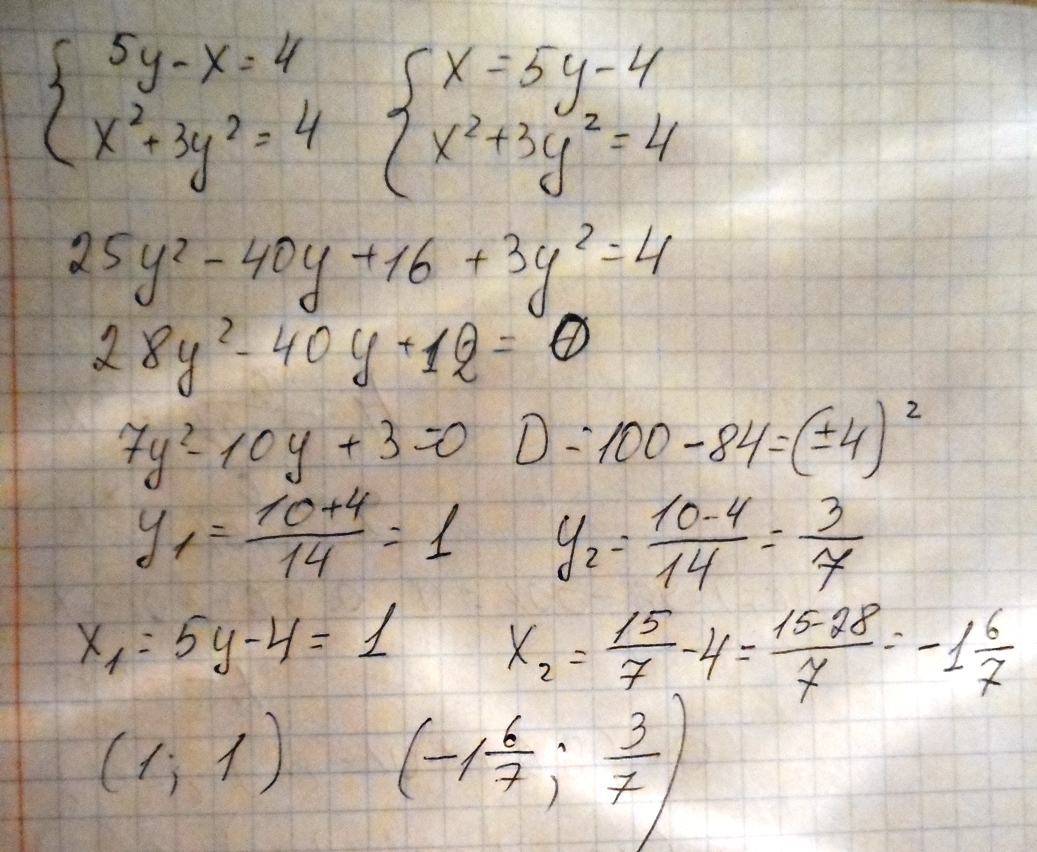 { 5y - x = 4 { x = 5y - 4
x² + 3y² = 4 x² + 3y² = 4
25y² - 40y + 16 + 3y² = 4
28y² - 40y + 12 = 0
7y² - 10y + 3 = 0 D = 100 - 84 = (±4)²
y₁ = (10+4)/14 = 1 y₂ = (10-4)/14 = 3/7
x₁ = 5y - 4 = 1 x₂ = 15/7 - 4 = (15-28)/7 = -1 6/7
(1; 1) (-1 6/7; 3/7)